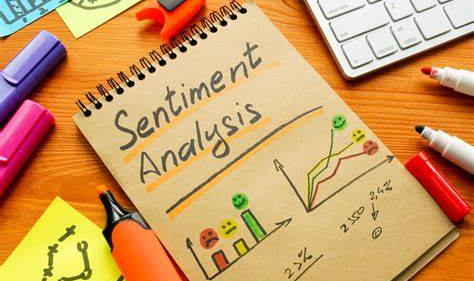 Sentiment
Analysis
23%
2350 24%